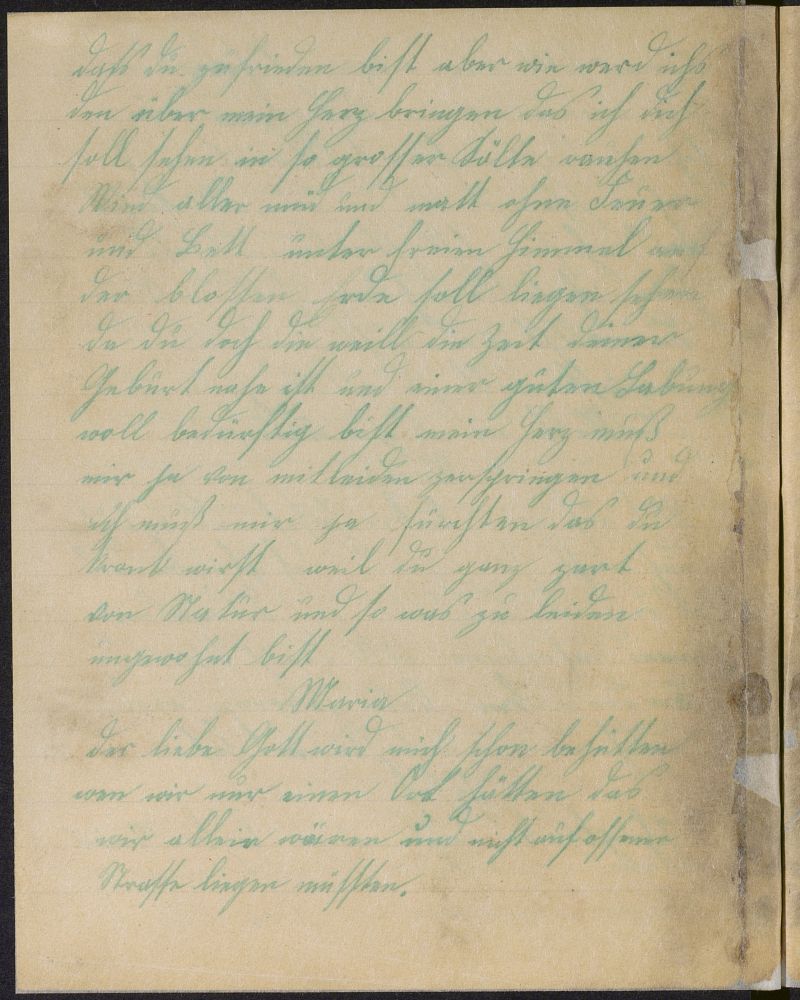 daß du zufrieden bist aber wie werd ichs
den über mein Herz bringen das ich dich
soll sehen in so grosser Kälte rauhen
Wind aller müd und matt ohne Feuer
und Bett unter freien Himmel auf
der blossen Erde soll liegen sehen
da du doch die weill die Zeit deiner
Geburt nahe ist und einer guten Labung
woll bedürftig bist mein Herz muß
mir ja von mitleiden zerspringen und
ich muß mir ja fürchten das du
krank wirst weil du ganz zart
von Natur und so was zu leiden
ungewohnt bist
Maria
der liebe Gott wird mich schon behütten
wen wir nur einen Ort hätten das
wir allein wären und nicht auf offener
Strasse liegen müssten.